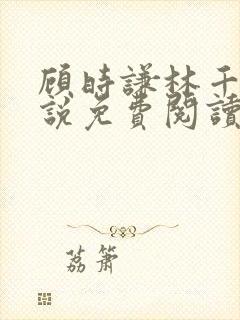 顾時謙林千
說免費閱讀
荔簫